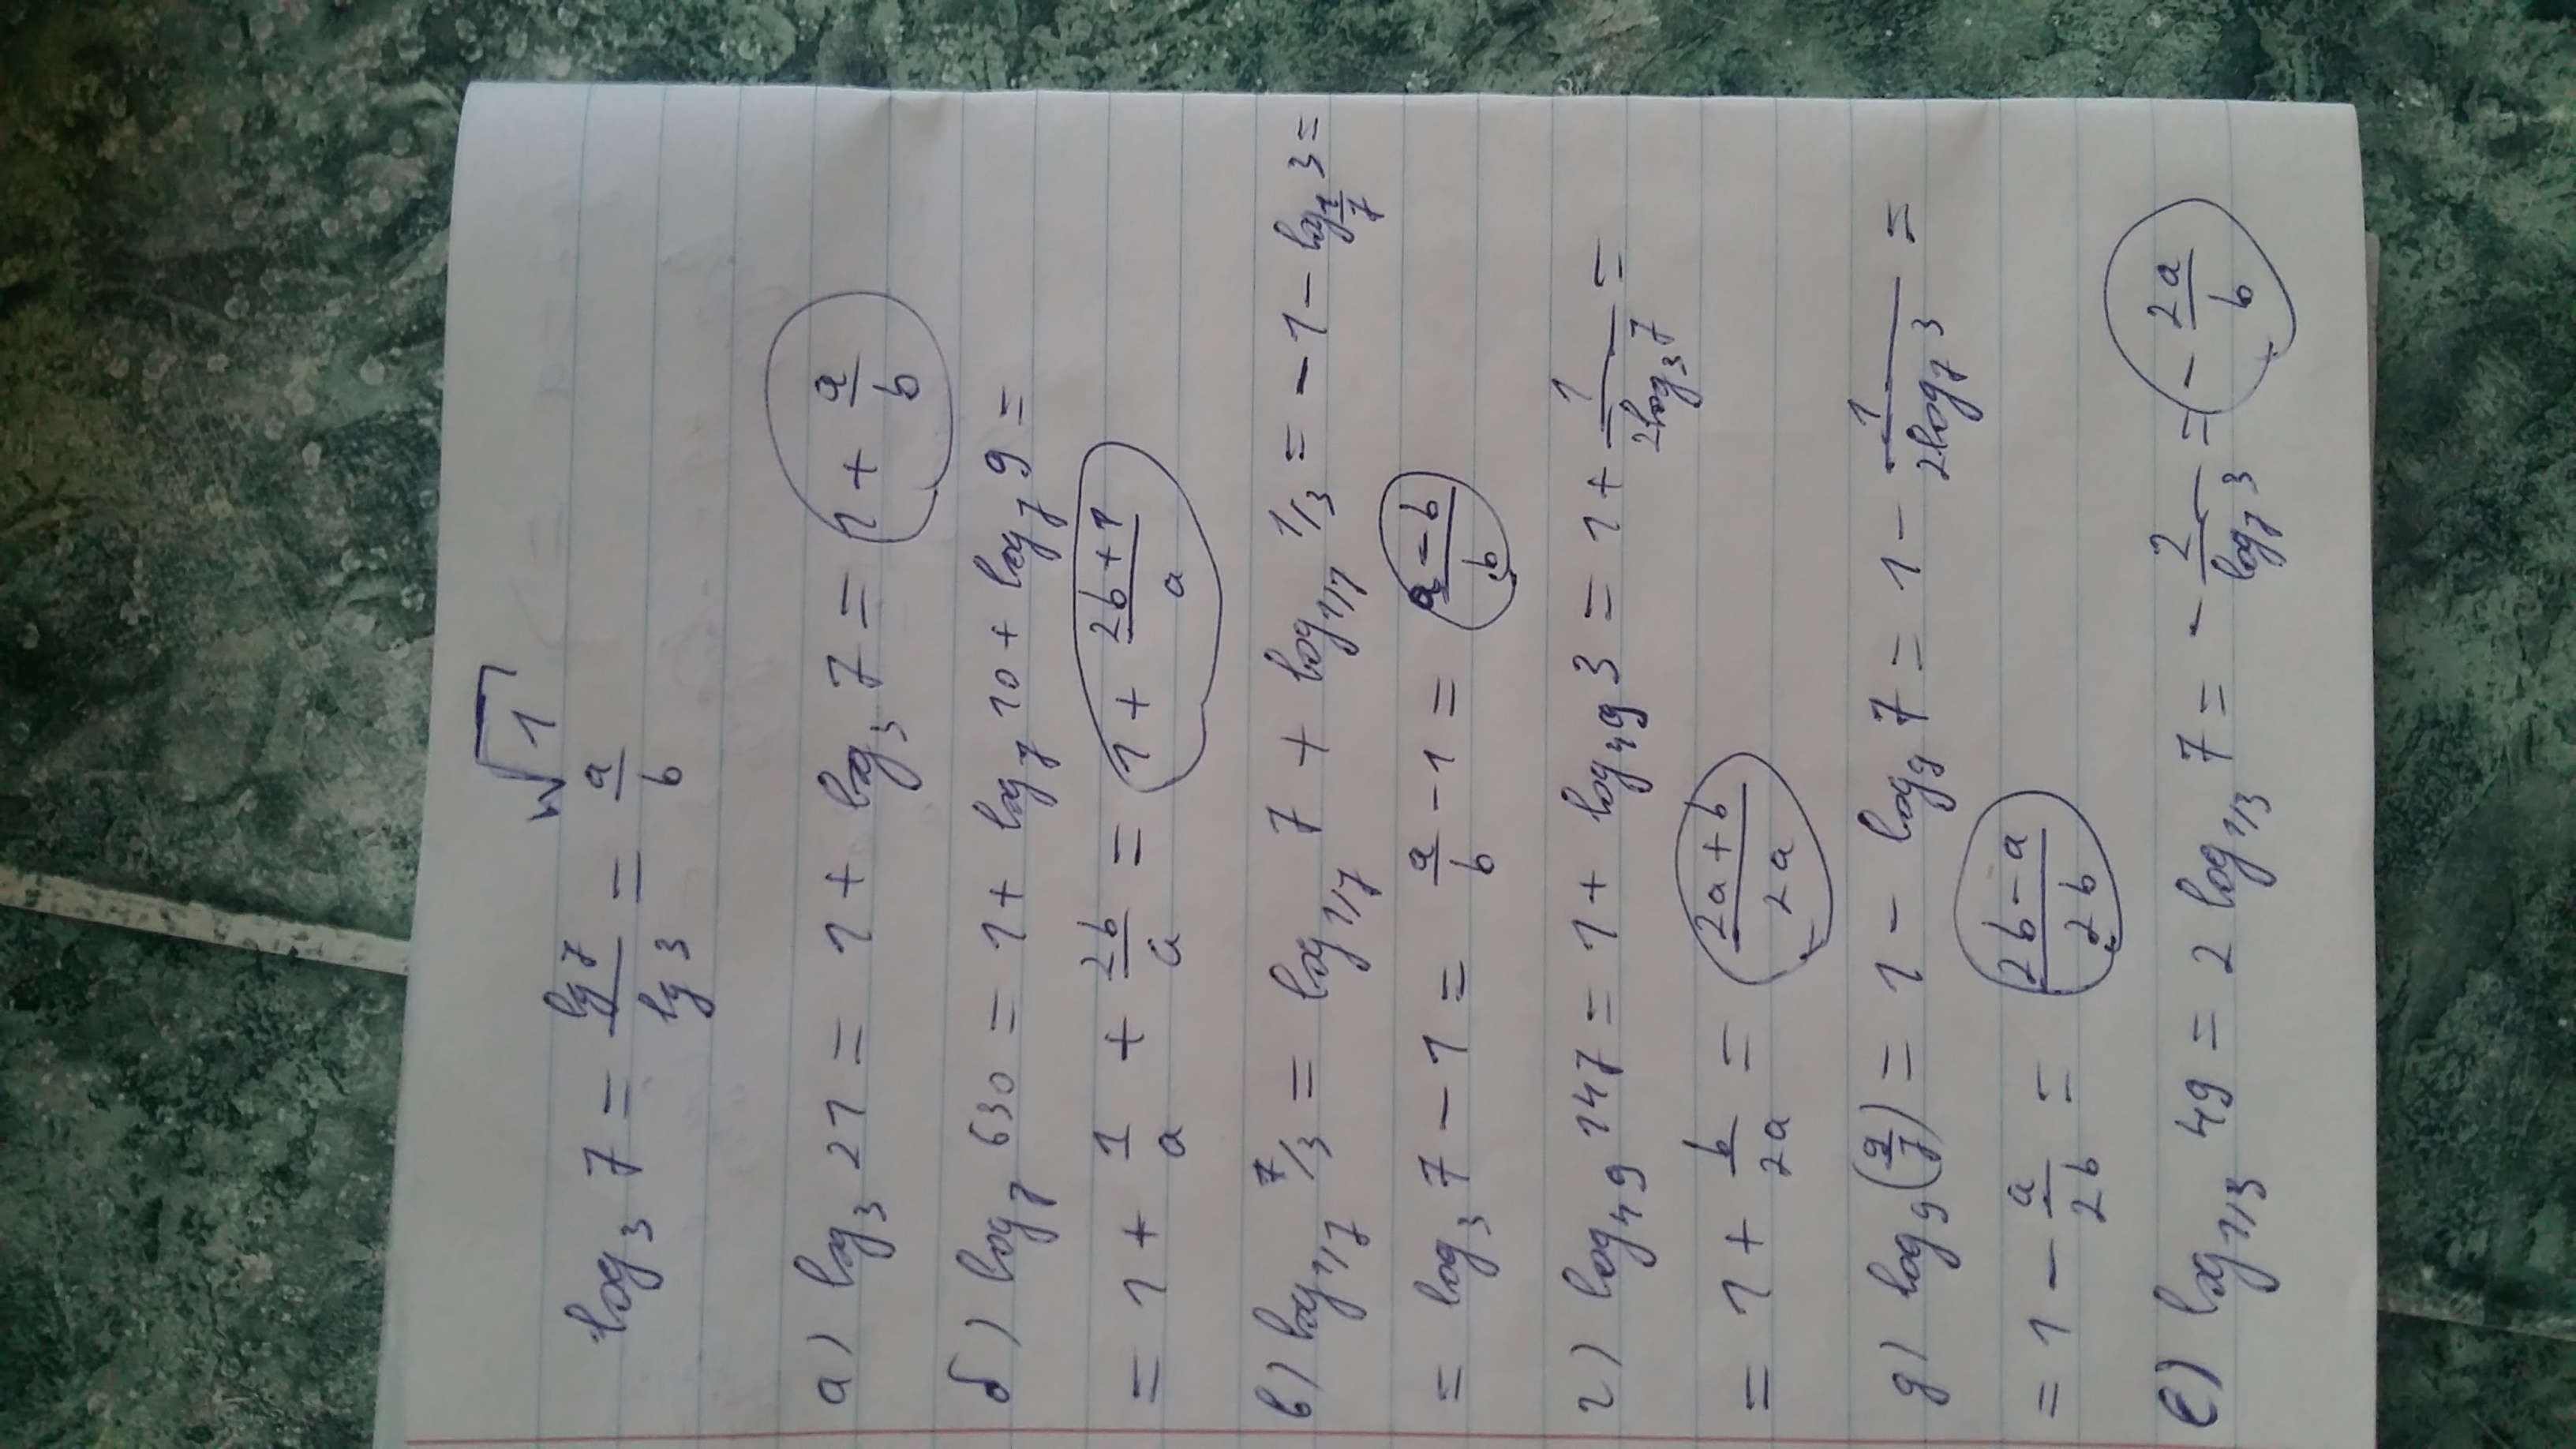 √1
log₃7 = lg7/lg3 = a/b
а) log₃21 = 1 + log₃7 = 1 + a/b
б) log₇630 = 1 + log₇10 + log₇9 =
= 1 + 1/a + 2b/a = 1 + (2b+1)/a
в) log₁/₇ 7/3 = log₁/₇ 7 + log₁/₇ 1/3 = -1 - log₁/₇ 3 =
= log₃7 - 1 = a/b - 1 = (a-b)/b
г) log₄₉147 = 1 + log₄₉3 = 1 + 1/(2log₃7) =
= 1 + b/2a = (2a+b)/2a
д) log₉(9/7) = 1 - log₉7 = 1 - 1/(2log₇3) =
= 1 - a/2b = (2b-a)/2b
е) log₁/₃49 = 2log₁/₃7 = -2/log₇3 = -2a/b